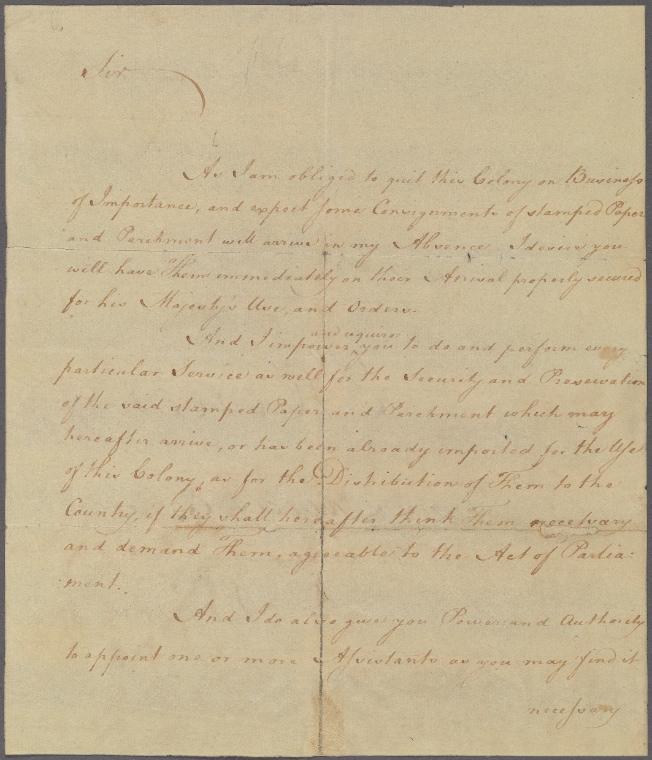 Sir
As I am obliged to quit this Colony on Business
of Importance, and expect some Consignments of stamped Paper
and Parchment will arrive in my Absence I desire you
will have Them immediately on their Arrival properly secured
for his Majesty's Use, and Orders.
and require
And I impower you to do and perform every
particular Service as well for the Security and Preservation
of the said stamped Paper and Parchment which may
hereafter arrive, or has been already imported for the Use
of this Colony, as for the Distribution of Them to the
Country, if they shall hereafter think Them necessary
and demand Them, agreeable to the Act of Parlia:
:ment.
And I do also give you Power and Authority
to appoint one or more Assistants as you may find it
necessary